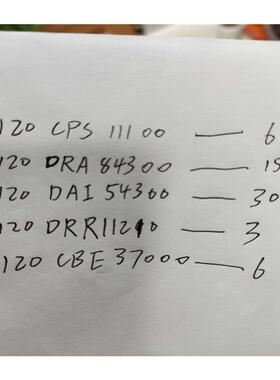 120 CPS 11100 — 6
120 DRA 84300 — 15
120 DAI 54300 — 30
120 DRR11210 — 3
120 CBE 37000 — 6